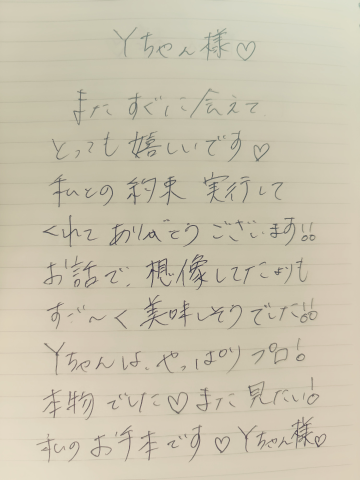 Yちゃん様♡
またすぐに会えて
とっても嬉しいです♡
私との約束 実行して
くれてありがとうございます!!
お話で、想像してたよりも
すご〜く美味しそうでした!!
Yちゃんは、やっぱりプロ!
本物でした♡また見たい!
私のお手本です♡Yちゃん様♡